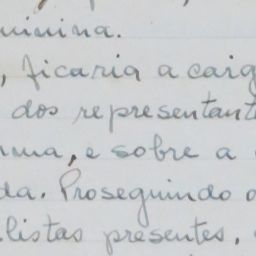 , ficaria a carg
dos representant
, e sobre a
da. Proseguindo o
listas presentes,